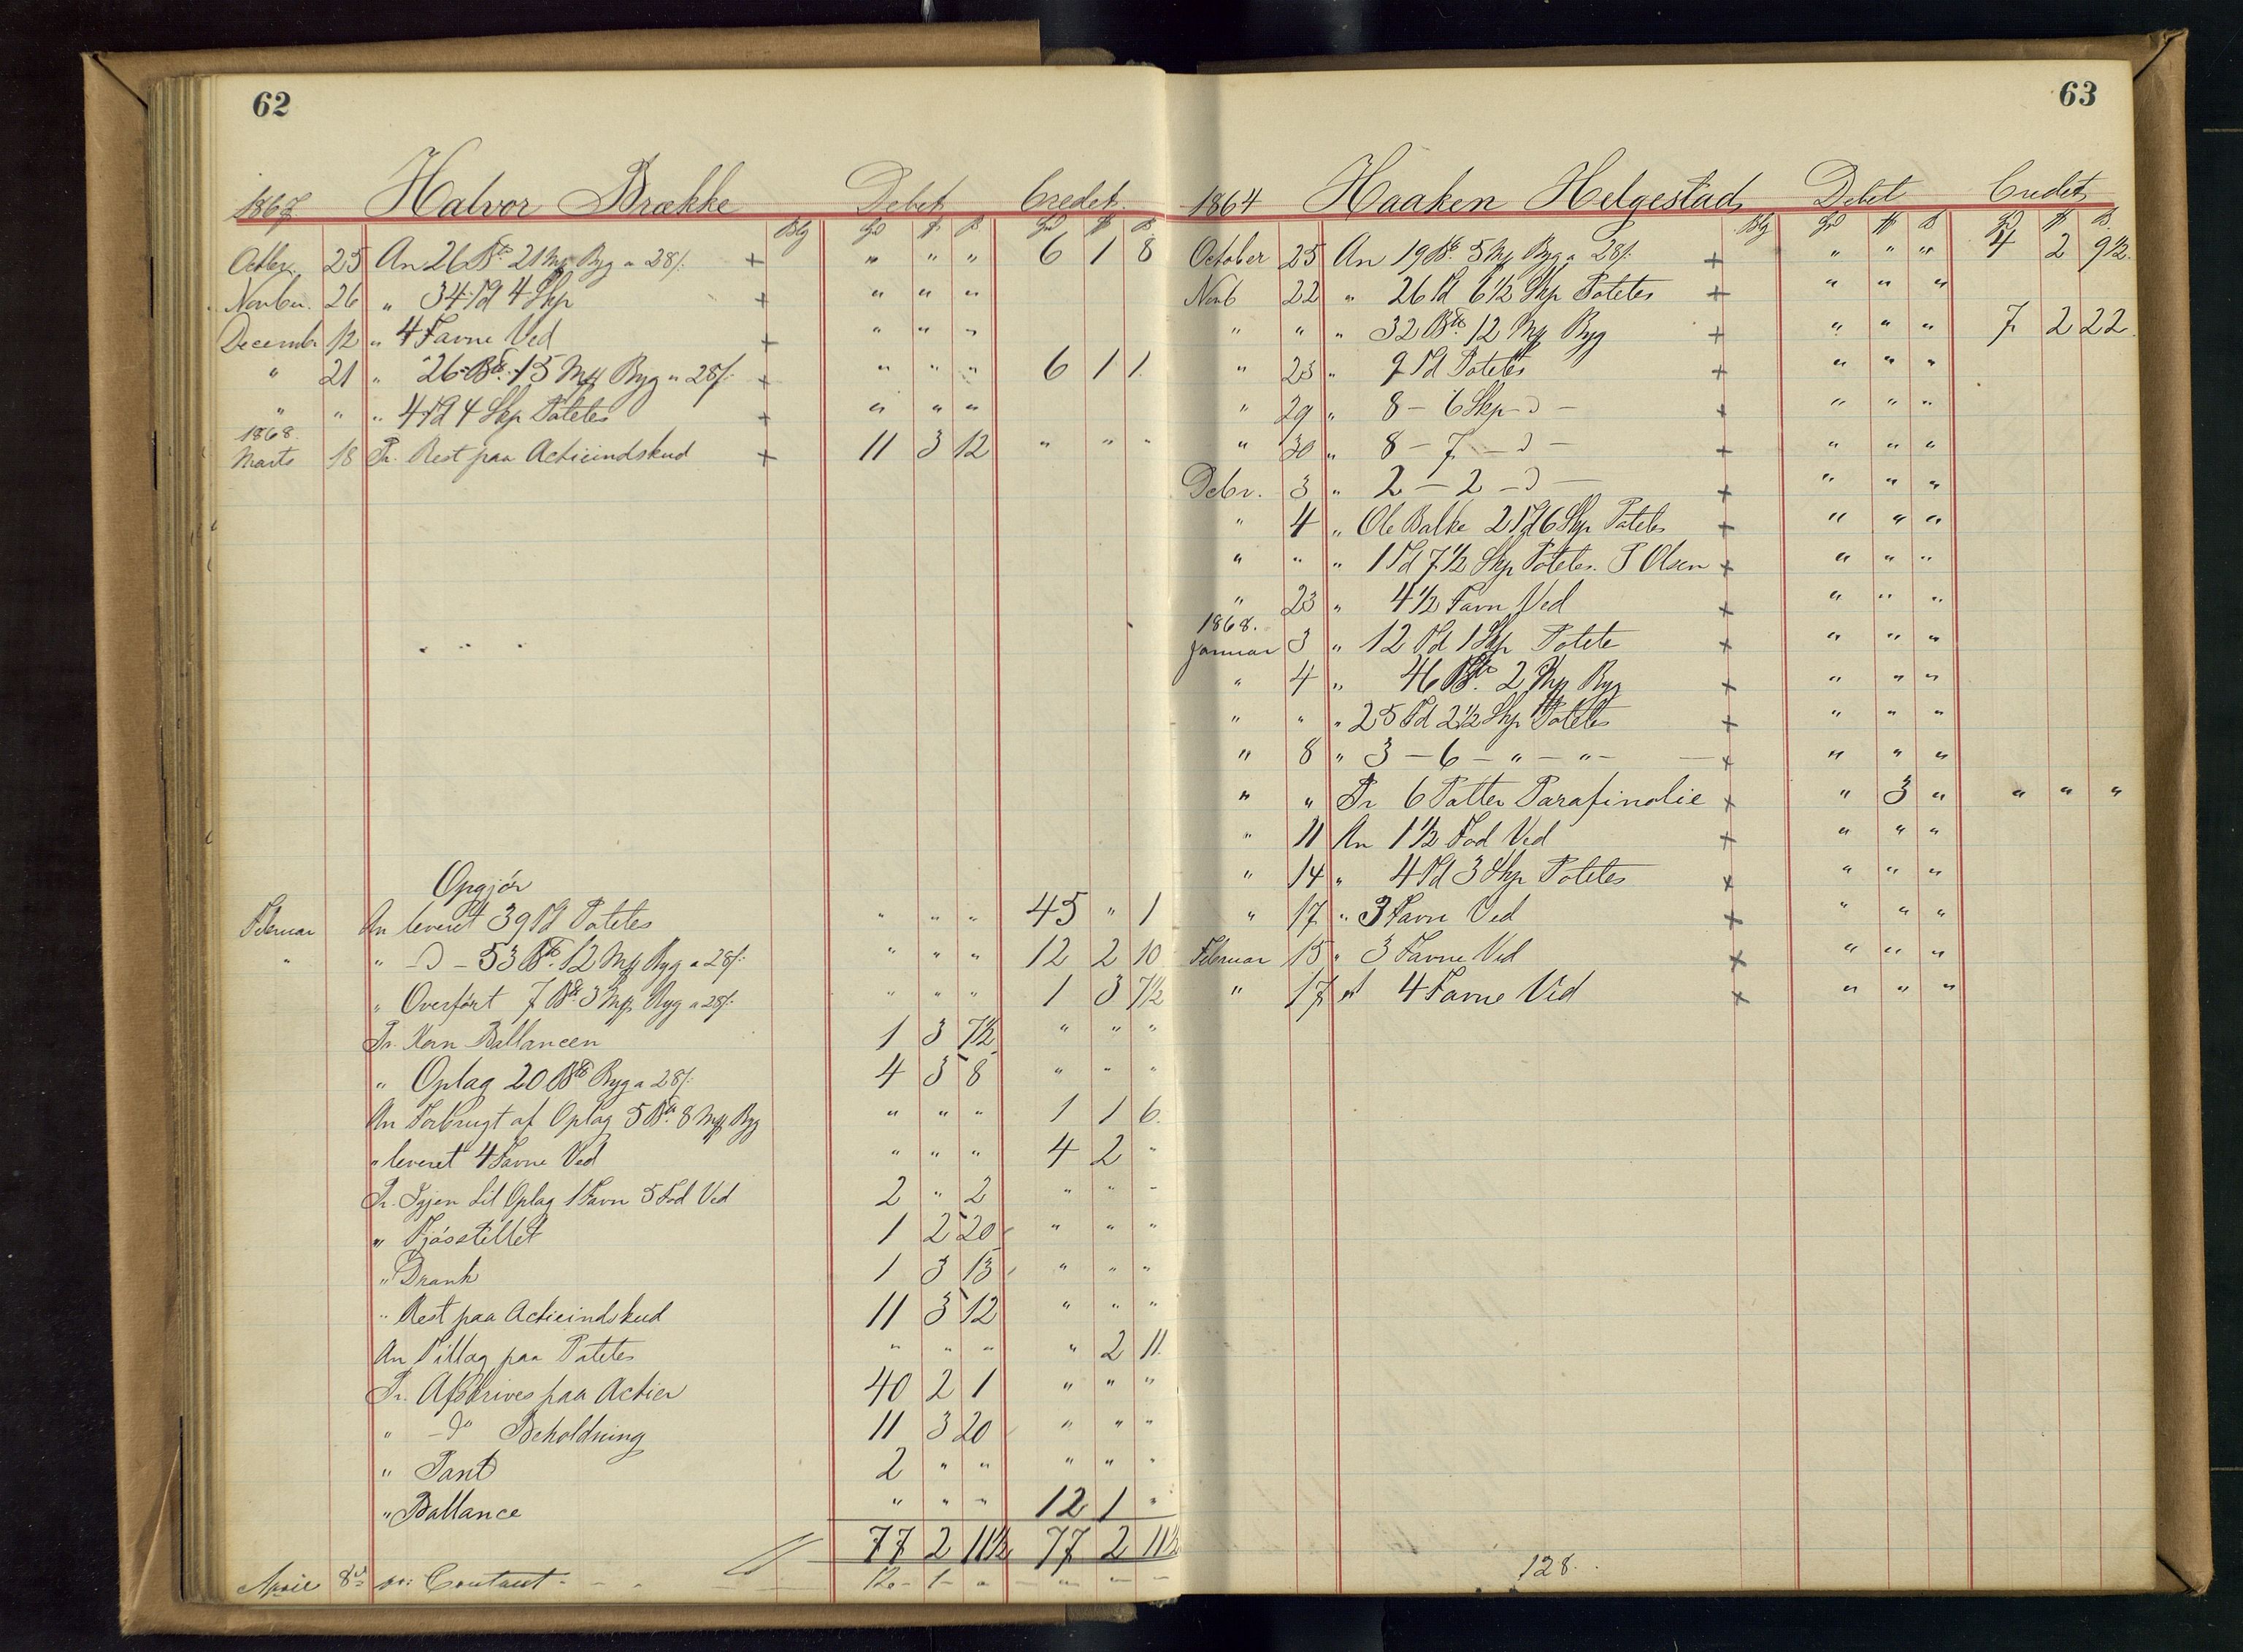 62
1867 Halvor Brække Debet Credet
Blg
Octbr. 25 An 26 B℔ 21 Mg Byg a 28/: + " " " 6 1 8
Novbr. 26 " 34 Td 4 Skp + " " "
Decembr 12 " 4 Favne Ved + " " "
" 21 " 26 B℔ 15 Mg Byg a 28/: + " " " 6 1 1
" " " 4 Td 4 Skp Potetes + " " "
1868.
Marts 18 Pr. Rest paa Actieindskud + 11 3 12 " " "
Opgjör
Februar An leveret 39 Td Potetes " " " 45 " 1
" " -D- 53 B℔ 12 Mg Byg a 28/: " " " 12 2 10
" Overfört 7 B℔ 3 Mg Byg a 28/: " " " 1 3 7½
Pr. Korn Ballancen 1 3 7½ " " "
" Oplag 20 B℔ Byg a 28/: 4 3 8 " " "
An Forbrugt af Oplag 5 B℔ 8 Mg Byg " " " 1 1 6
" leveret 4 Favne Ved " " " 4 2 "
Pr. Igjen til Oplag 1 Favn 5 Fod Ved 2 " 2 " " "
" Fjösstellet 1 2 20 " " "
" Drank 1 3 15 " " "
" Rest paa Actieindskud 11 3 12 " " "
An Tillæg paa Potetes " " " " 2 11
Pr. Afskrives paa Actier 40 2 1 " " "
" -do Beholdning 11 3 20 " " "
" Pant 2 " " " " "
" Ballance " " " 12 1 "
77 2 11½ 77 2 11½
8 pr: Contant - - - 12 - 1 - " - " - " -
63
1864 Haaken Helgestad Debet Credet
Blg
October 25 An 19 B℔ 5 Mg Byg a 28/: + " " " 4 2 9½
Novb 22 " 26 Td 6½ Skp Potetes + " " "
" " " 32 B℔ 12 Mg Byg + " " " 7 2 22
" 23 " 9 Td Potetes + " " "
" 29 " 8 - 6 Skp - D - + " " "
" 30 " 8 - 7 - D - + " " "
Debr. 3 " 2 - 2 - D - + " " "
" 4 " Ole Balke 2 Td 6 Skp Potetes + " " "
" " " 1 Td 7½ Skp Potetes. P Olsen + " " "
" 23 " 4½ Favn Ved + " " "
1868.
Januar 3 " 12 Td 1 Skp Potete + " " "
" 4 " 46 B℔ 2 Mg Byg + " " "
" " " 25 Td 2½ Skp Potetes + " " "
" 8 " 3 - 6 - " - " - - + " " "
" " Pr 6 Potter Parafinolie + " 3 " " " "
" 11 An 1½ Fod Ved + " " "
" 14 " 4 Td 3 Skp Potetes + " " "
" 17 " 3 Favne Ved + " " "
Februar 15 " 3 Favne Ved + " " "
" 17 " 4 Favne Ved + " " "
128.